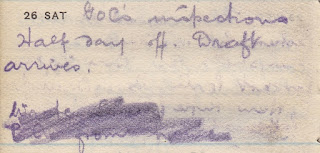 26 SAT GOC's inspections
Half day off. Draft
arrives.
from